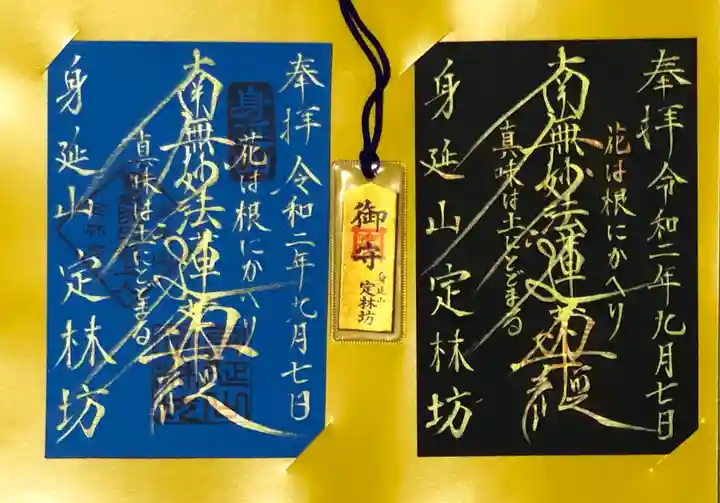 奉拝 令和二年九月七日
花は根にかへり
南無妙法蓮華経
真味は土にとどまる
身延山定林坊
御守
身延山
定林坊
奉拝 令和二年九月七日
花は根にかへり
南無妙法蓮華経
真味は土にとどまる
身延山定林坊